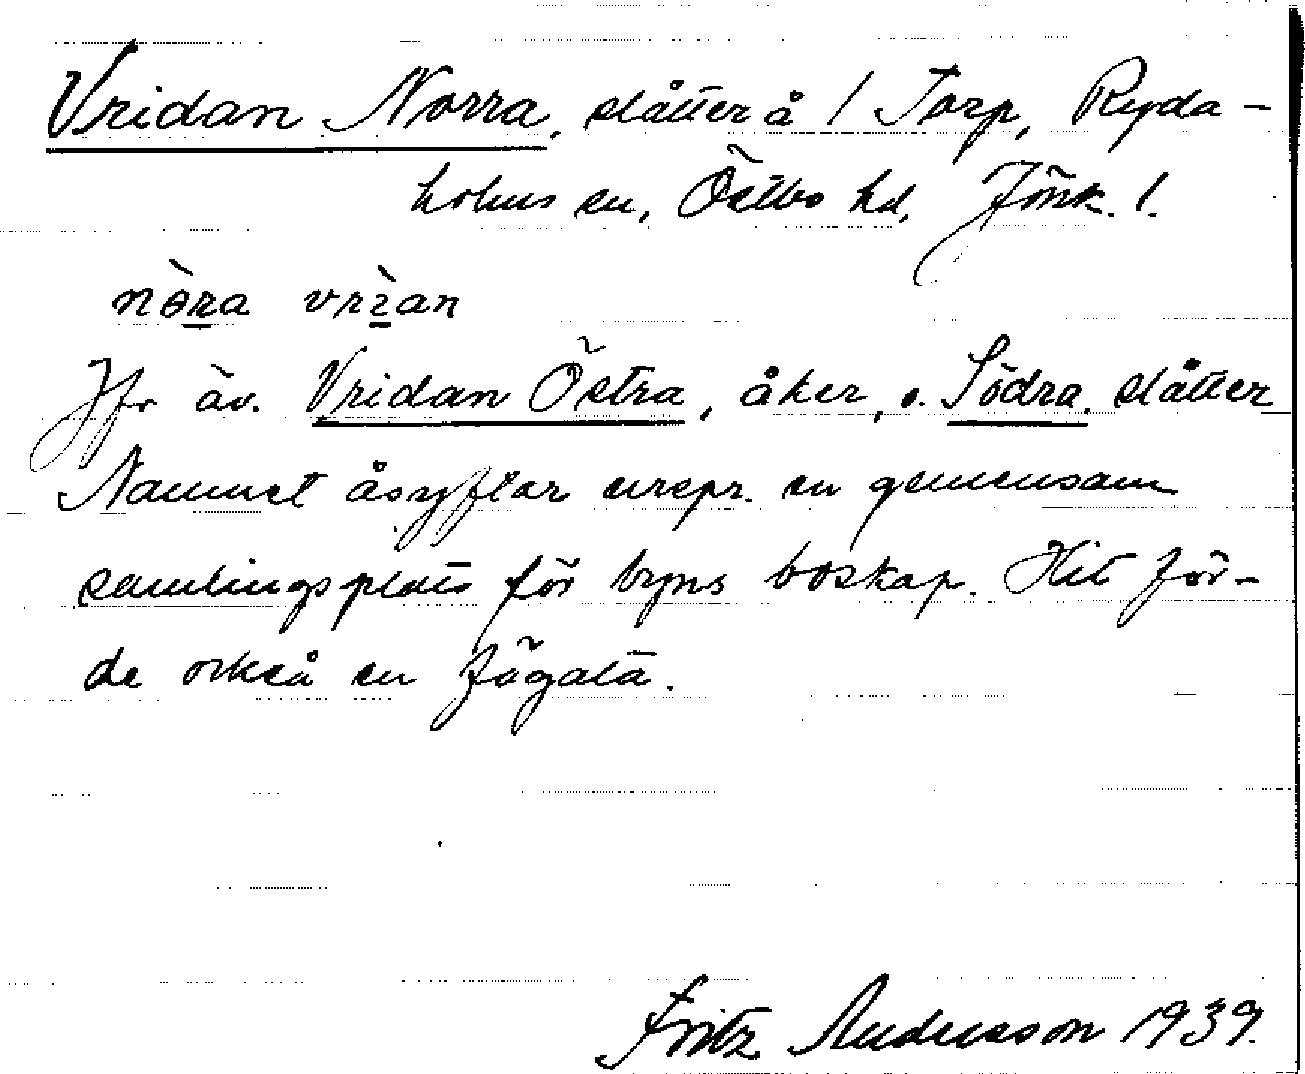 Vridan Norra, slåtter å 1 Torp, Ryda-
holms sn, Östbo hd, Jönk. l.
nòra vrìan
Jfr äv. Vridan Östra, åker, o. Södra, slåtter
Namnet åsyftar urspr. en gemensam
samlingsplats för byns boskap. Hit för-
de också en fägata.
Fritz Andersson 1939.